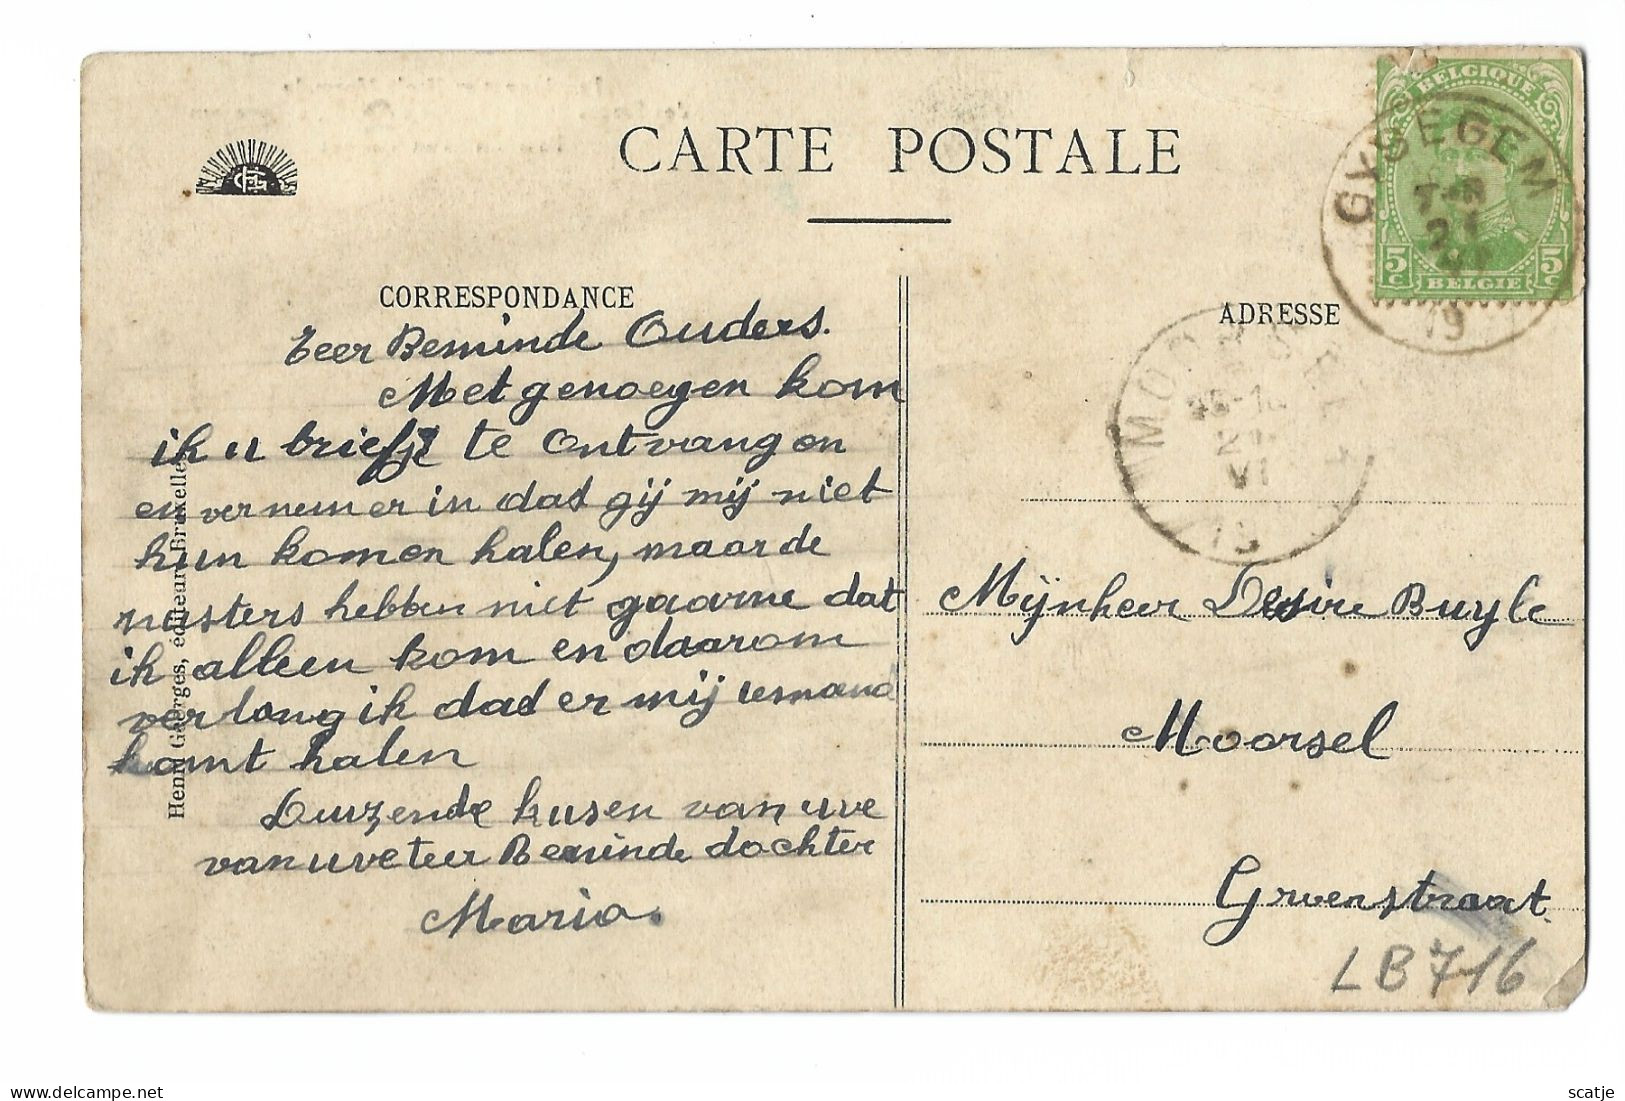 CARTE POSTALE
BELGIQUE
5 C
5 C
BELGIE
GYSEGEM
21
19
CORRESPONDANCE
Zeer Beminde Ouders.
Met genoegen kom
ik u briefje te ontvangen
en vernemer in dad gij mij niet
kun komen halen, maar de
nusters hebben niet gaarne dat
ik alleen kom en daarom
verlang ik dad er mij iemand
komt halen
Duizende kusen van uve
van uve teer Beminde dochter
Maria.
Henri Georges, éditeur, Bruxelles
ADRESSE
MOORSEL
VI
19
Mijnheer Desire Buyle
Moorsel
Groenstraat
LB716
scatje